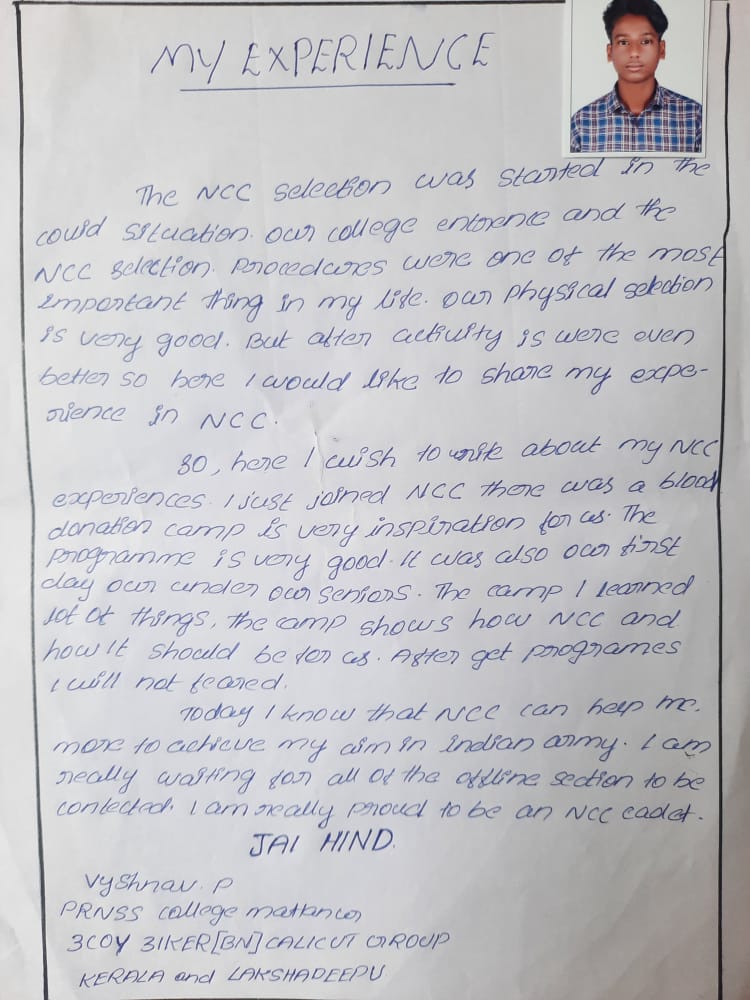 MY EXPERIENCE
The NCC selection was started in the
covid situation. our college entrence and the
NCC selection. procedures were one of the most
important thing in my life. our physical selection
is very good. But after activity is were even
better so here I would like to share my expe-
rience in NCC.
so, here I wish to write about my NCC
experiences. I just joined NCC there was a blood
donation camp is very inspiration for us. The
programme is very good. It was also our first
day our under our seniors. The camp I learned
lot of things, the camp shows how NCC and
how it should be for us. After get programes
I will not feared.
Today I know that NCC can help me.
more to achieve my aim in indian army. I am
really waiting for all of the offline section to be
contected. I am really proud to be an NCC cadet.
JAI HIND.
Vyshnav. P
PRNSS college mattanur
3COY 31KER[BN] CALICUT GROUP
KERALA and LAKSHADEEPU